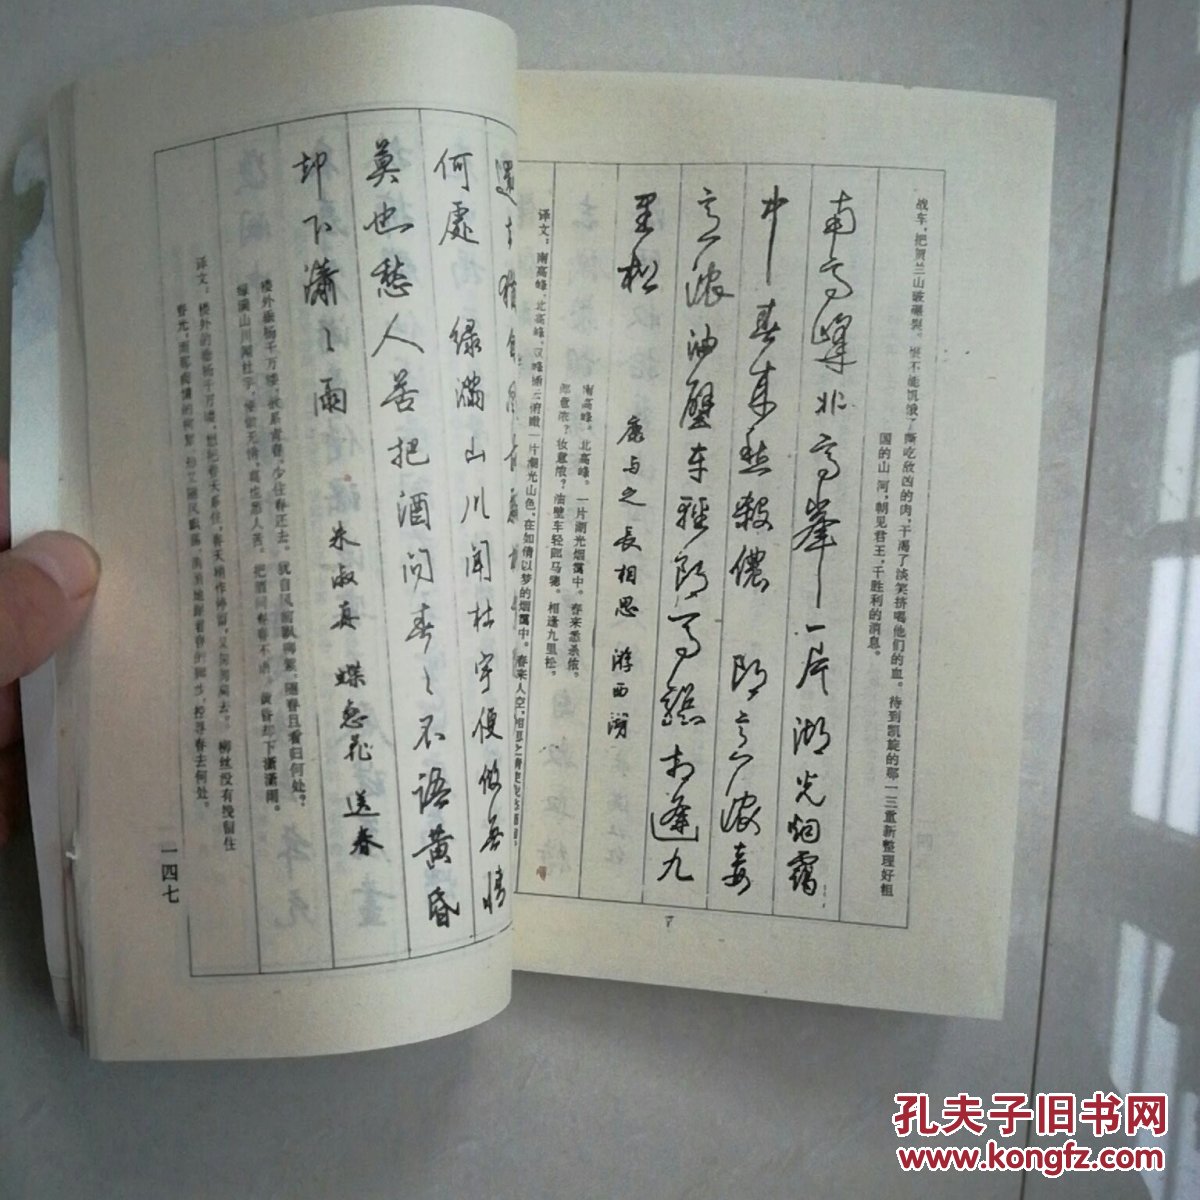 战车，把贺兰山破碾裂。恨不能饥饿了嘶吃敌凶的肉，干渴了谈笑挤喝他们的血。待到凯旋的那一三重新整理好祖
国的山河，朝见君王，千胜利的消息。
南高峰北高峯一片湖光烟靄
中春来愁殺儂郎意浓妾
意浓油壁车轻郎马骢相逢九
里松
康与之长相思游西湖
南高峰。北高峰。一片湖光烟霭中。春来愁杀侬。
郎意浓？妆意浓？油壁车轻郎马骢。相逢九里松。
译文：南高峰、北高峰，双峰插云俯瞰一片湖光山色，在如倩以梦的烟霭中。春来人空，
何處绿满山川闻杜宇便做無情
莫也愁人苦把酒问春〻不语黄昏
却下瀟〻雨
朱淑真蝶恋花送春
楼外垂杨千万缕。欲系青春，少住春还去。犹自风前飘柳絮。随春且看归何处？
绿满山川闻杜宇。便做无情，莫也愁人苦。把酒问春春不语。黄昏却下潇潇雨。
译文：楼外的垂杨千万缕，想把春天系住，春天稍作停留，又匆匆离去。柳丝没有挽留住
一四七
孔夫子旧书网
www.kongfz.com